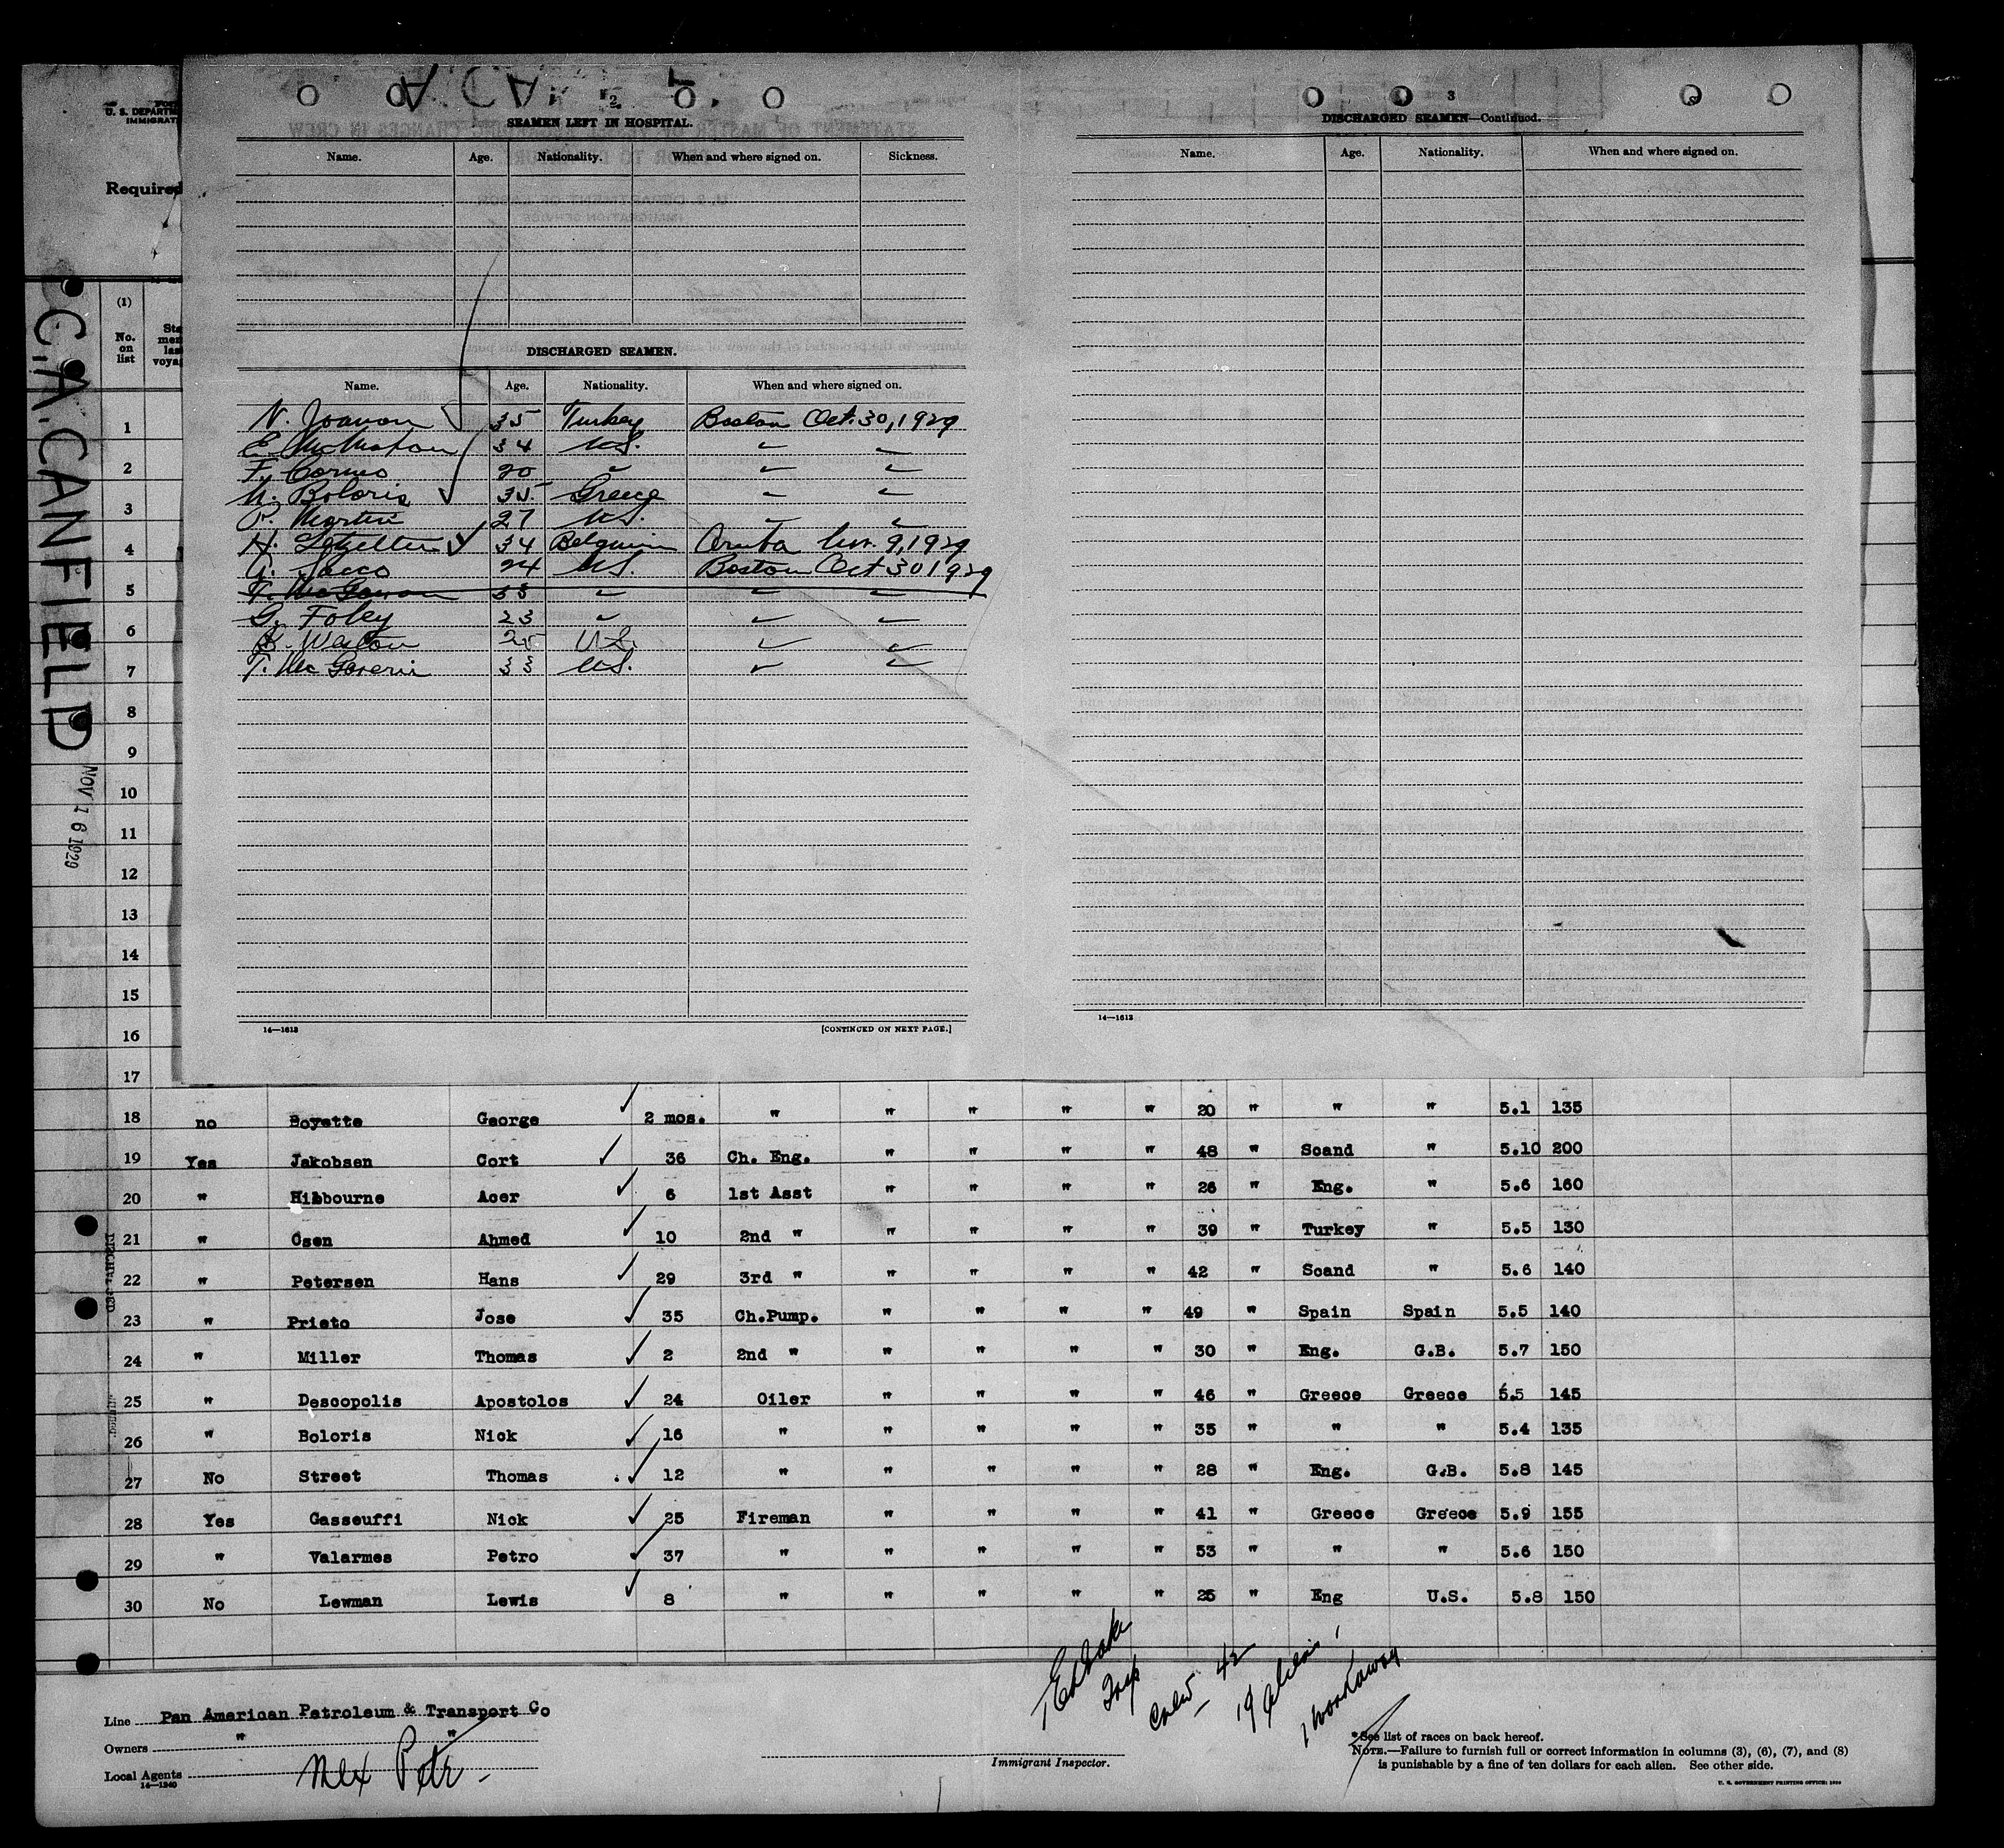 U. S. DEPARTM
IMMIGRAT
Required
C.A. CANFIELD
NOV 16 1929
(1)
No. on list
2
SEAMEN LEFT IN HOSPITAL.
Name. Age. Nationality. When and where signed on. Sickness.
DISCHARGED SEAMEN.
Name. Age. Nationality. When and where signed on.
N. Joavon 35 Turkey Boston Oct. 30, 1929
E. McMahon 34 U.S. " "
F. 20 " " "
N. Boloris 35 Greece " "
P. Martin 27 U.S. " "
H. 34 Belguim Aruba Nov. 9, 1929
Sacco 24 U.S. Boston Oct 30 1929
T. McGowan 33 " " "
G. Foley 23 " " "
Weston 25 U.S. " "
T. McGovern 33 U.S. " "
14—1613 [CONTINUED ON NEXT PAGE.]
3
DISCHARGED SEAMEN—Continued.
Name. Age. Nationality. When and where signed on.
14—1613
1
2
3
4
5
6
7
8
9
10
11
12
13
14
15
16
17
18 no Boyette George 2 mos. " " " " " 20 " " " 5.1 135
19 Yes Jakobsen Cort 36 Ch. Eng. " " " " 48 " Scand " 5.10 200
20 " Hibbourne Acer 6 1st Asst " " " " 26 " Eng. " 5.6 160
21 " Osen Ahmed 10 2nd " " " " " 39 " Turkey " 5.5 130
22 " Petersen Hans 29 3rd " " " " " 42 " Scand " 5.6 140
23 " Prieto Jose 35 Ch.Pump. " " " " 49 " Spain Spain 5.5 140
24 " Miller Thomas 2 2nd " " " " " 30 " Eng. G.B. 5.7 150
25 " Descopolis Apostolos 24 Oiler " " " " 46 " Greece Greece 5.5 145
26 " Boloris Nick 16 " " " " " 35 " " " 5.4 135
27 No Street Thomas 12 " " " " " 28 " Eng. G.B. 5.8 145
28 Yes Gasseuffi Nick 25 Fireman " " " " 41 " Greece Greece 5.9 155
29 " Valarmes Petro 37 " " " " " 53 " " " 5.6 150
30 No Lewman Lewis 8 " " " " " 25 " Eng U.S. 5.8 150
Crew 42
19 aliens
1 workaway
Line Pan American Petroleum & Transport Co
Owners " "
Local Agents Mex Petr
14—1240
Immigrant Inspector.
*See list of races on back hereof.
NOTE.—Failure to furnish full or correct information in columns (3), (6), (7), and (8)
is punishable by a fine of ten dollars for each alien. See other side.